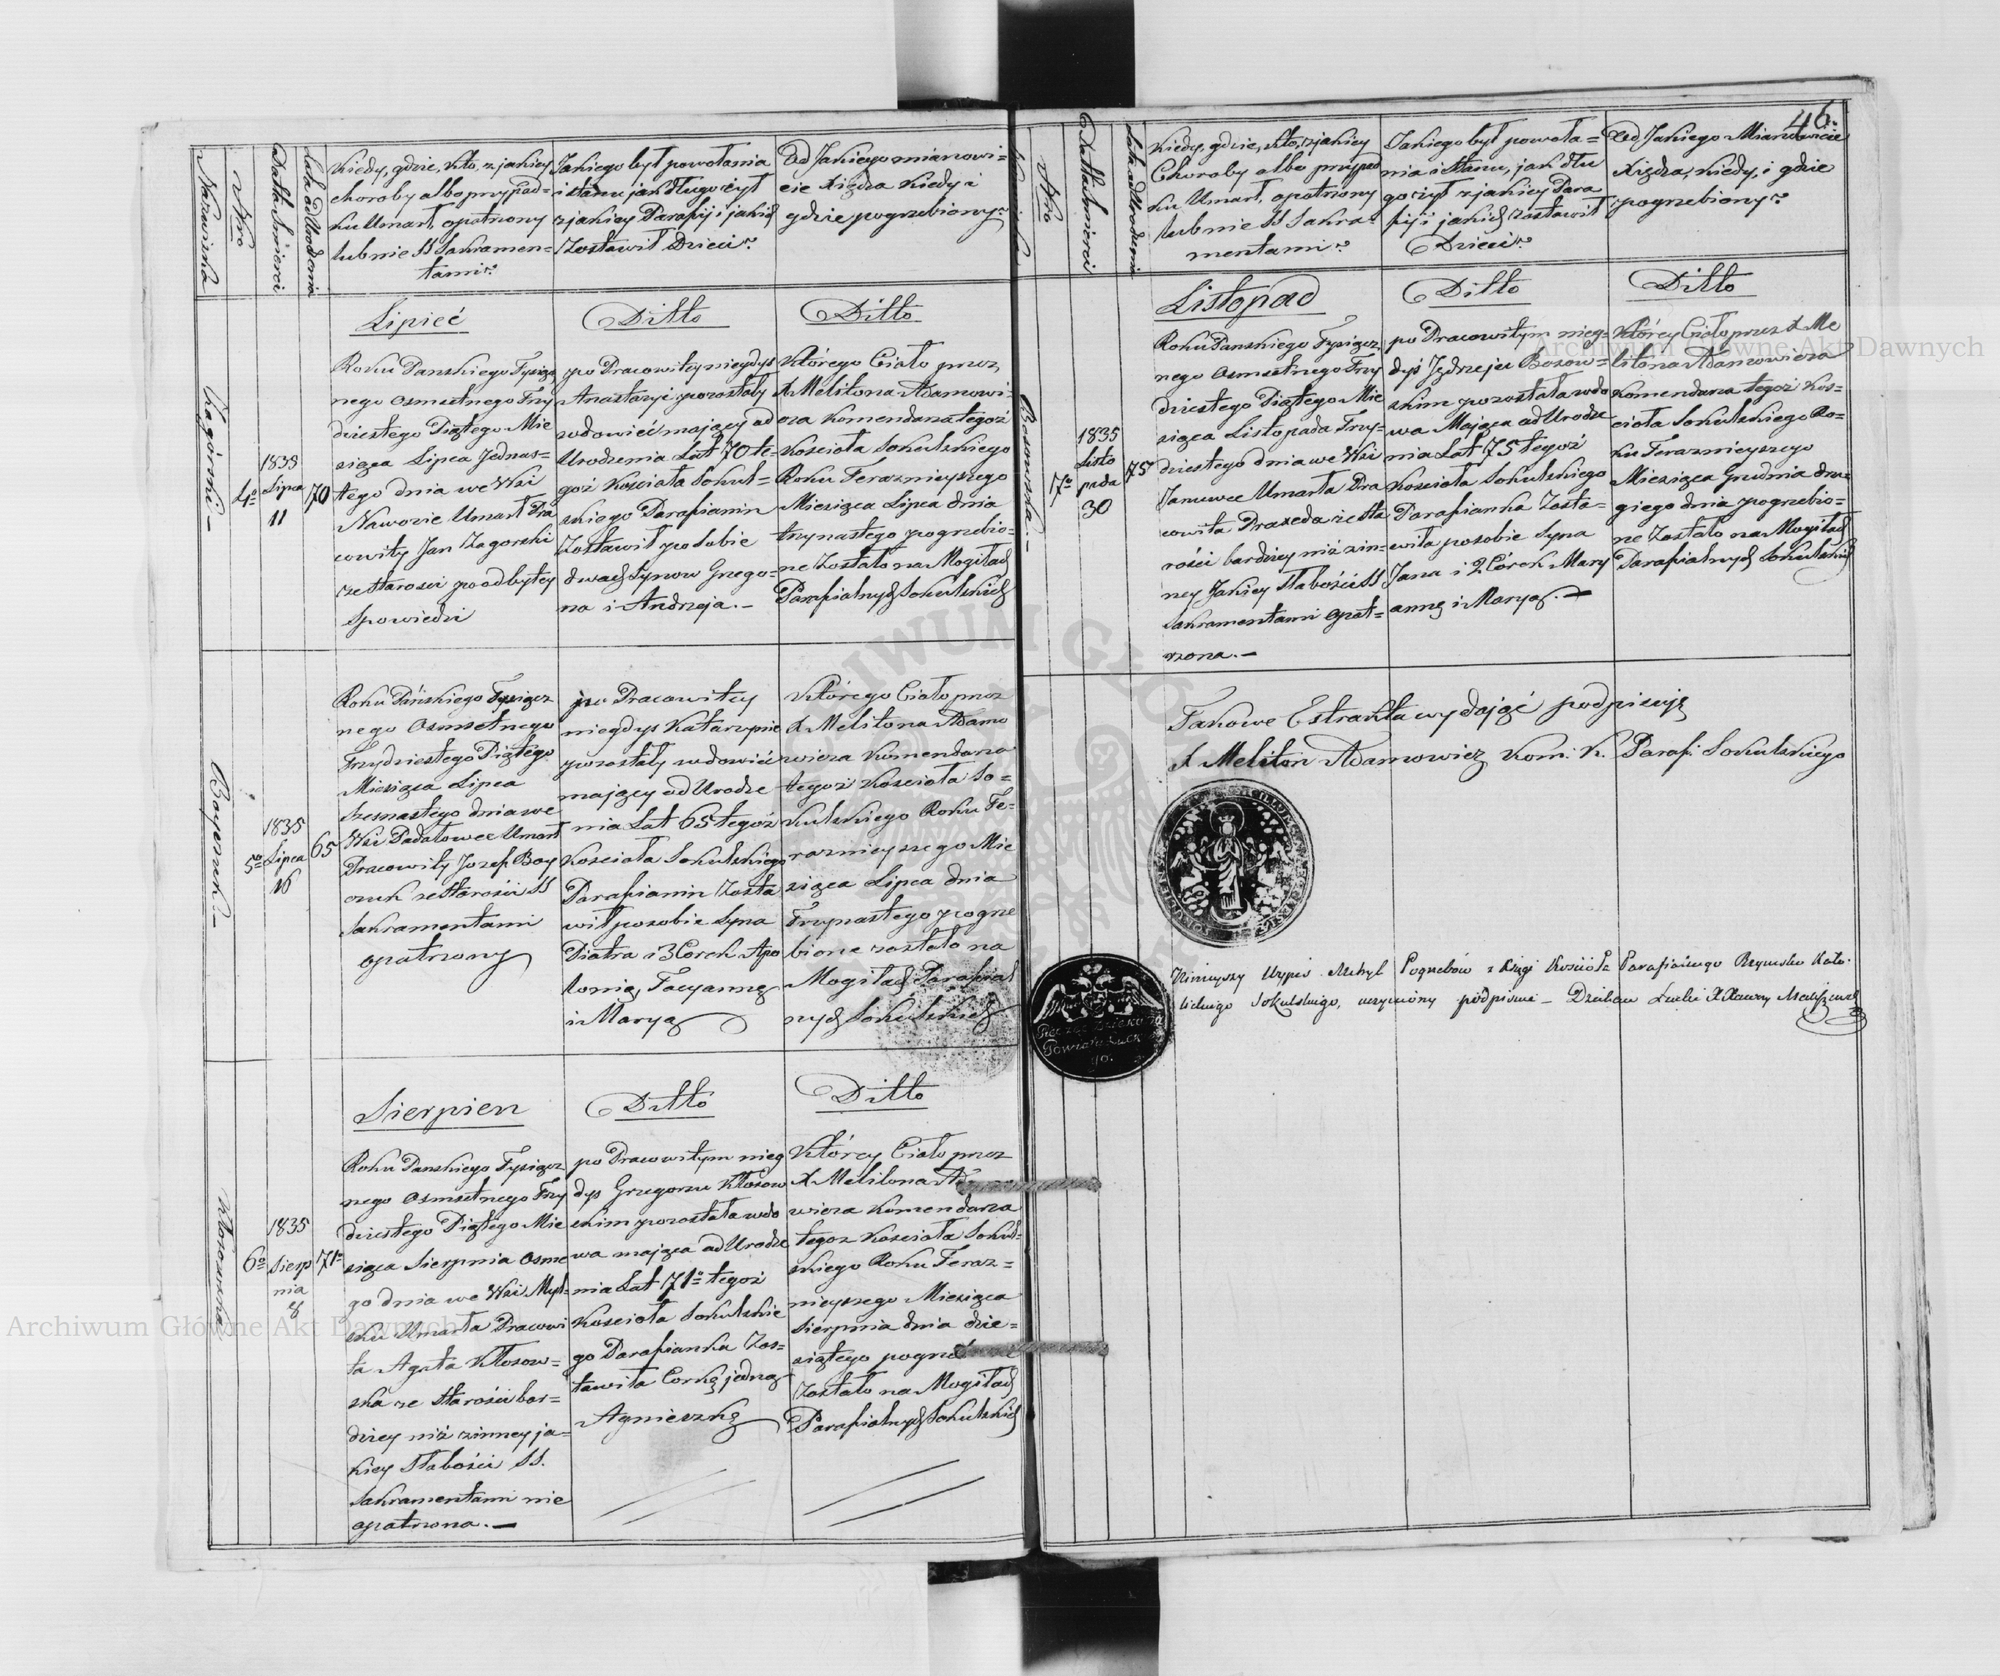 46.
Nazwiska
Nro
Datta Śmierci
Lata od Urodzenia
Kiedy, gdzie, kto, z jakiey
choroby albo przypad=
ku Umarł, opatrzony
lub nie SS Sakramen=
tami?
Jakiego był powołania
i stanu jak długo żył
z jakiey Parafij i jakich
zostawił Dzieci?
Od Jakiego mianowi=
cie Xiędza kiedy i
gdzie pogrzebiony?
Lipieć
Ditto
Ditto
Zagórski –
4o
1835
Lipca
11
70
Roku Panskiego Tysiącz
nego Osmsetnego Trzy
dziestego Piątego Mie
siąca Lipca Jednas=
tego dnia we Wsi
Nawozie Umarł Pra
cowity Jan Zagorski
ze starosci po odbytey
Spowiedzi
po Pracowitey niegdys
Anastazyi pozostały
wdowieć maiący od
Urodzenia Lat 70 te=
goż Kościoła Sokul=
skiego Parafianin
Zostawił po sobie
dwuch Synow Grego=
rza i Andrzeja. –
Którego Ciało przez
X Melitona Adamowi=
cza Komendarza tegoż
Kościoła Sokulskiego
Roku Teraznieyszego
Miesiąca Lipca dnia
trzynastego pogrzebio=
ne Zostało na Mogiłach
Parafialnych Sokulskich
Bayczuk –
5o
1835
Lipca
16
65
Roku Pańskiego Tysiącz
nego Osmsetnego
Trzydziestego Piątego
Miesiąca Lipca
Szesnastego dnia we
Wsi Padałowce Umarł
Pracowity Jozef Bay
czuk ze starości SS
Sakramentami
opatrzony
po Pracowitey
niegdys Katarzynie
pozostały wdowieć
mający od Urodze
nia Lat 65 tegoż
Koscioła Sokulskiego
Parafianin Zosta
wił po sobie Syna
Piotra i 3 Corek Apo
lonią, Tacyannę
i Maryą
Którego Ciało przez
X Melitona Adamo
wicza Komendarza
tegoż Kosciola So=
kulskiego Roku Te=
raznieyszego Mie
siąca Lipca dnia
Trzynastego pogrze
bione zostało na
Mogiłach Parafial
nych Sokulskich
Sierpien
Dittó
Ditto
Kłosowska
6o
1835
Sierp
nia
8
71o
Roku Panskiego Tysiącz
nego Osmsetnego Trzy
dziestego Piątego Mie
siąca Sierpnia Osme
go dnia we Wsi Myt=
sku Umarła Pracowi
ta Agata Kłosow=
ska ze starości bar=
dziey niż z inney ja=
kiey słabości SS.
Sakramentami nie
opatrzona. –
po Pracowitym nieg
dys Grzegorzu Kłosow
skim pozostała wdo
wa mająca od Urodze
nia Lat 71o tegoż
Kosciola Sokulskie
go Parafianka Zos=
tawiła Corkę jedną
Agnieszkę
Którey Ciało przez
X Melitona
wicza Komendarza
tegoz Kosciola Sokul=
skiego Roku Teraz=
nieyszego Miesiąca
Sierpnia dnia dzie=
siątego
Zostało na Mogiłach
Parafialnych Sokulskich
Nro
Datta Smierci
Lata od Urodzenia
Kiedy, gdzie, kto, z jakiey
Choroby albo przypad
ku Umarł, opatrzony
lub nie SS Sakra=
mentami?
Jakiego był powoła=
nia i Stanu, jak dłu
go żył z jakiey Para
fij i jakich zostawił
Dzieci?
Od Jakiego Mianowicie
Xiędza, kiedy, i gdzie
pogrzebiony?
Listopad
Ditto
Ditto
Bosowska. –
7o
1835
Listo
pada
30
75
Roku Panskiego Tysiącz
nego Osmsetnego Trzy
dziestego Piątego Mie
siąca Listopada Trzy=
dziestego dnia we Wsi
Janewce Umarła Pra
cowita Praxeda ze sta
rości bardziey niż z in=
ney Jakiey słabości SS
Sakramentami opat=
rzona. –
po Pracowitym nieg=
dyś Jędrzeju Bosow=
skim pozostała wdo
wa Mająca od Urodze
nia Lat 75 tegoż
Kosciola Sokulskiego
Parafianka Zosta=
wiła po sobie Syna
Jana i 2 Córek Mary
annę i Maryą. –
Którey Ciało przez X Me
litona Adamowicza
Komendarza tegoż Kos=
ciola Sokulskiego Ro=
ku Teraznieyszego
Miesiąca Grudnia dru=
giego dnia pogrzebio=
ne Zostało na Mogiłach
Parafialnych Sokulskich
Takowe Extrakta wydając podpisuję
X Meliton Adamowicz Kom. K. Parafi. Sokulskiego
Ninieyszy Wypis Metryk Pogrzebów z Księgi Kościoła Parafialnego Rzymsko Kato-
lickiego Sokulskiego, uczyniony podpisuie –
Pieczęć Dziekana
Powiatu Łuck
go.
Archiwum Główne Akt Dawnych
Archiwum Główne Akt Dawnych